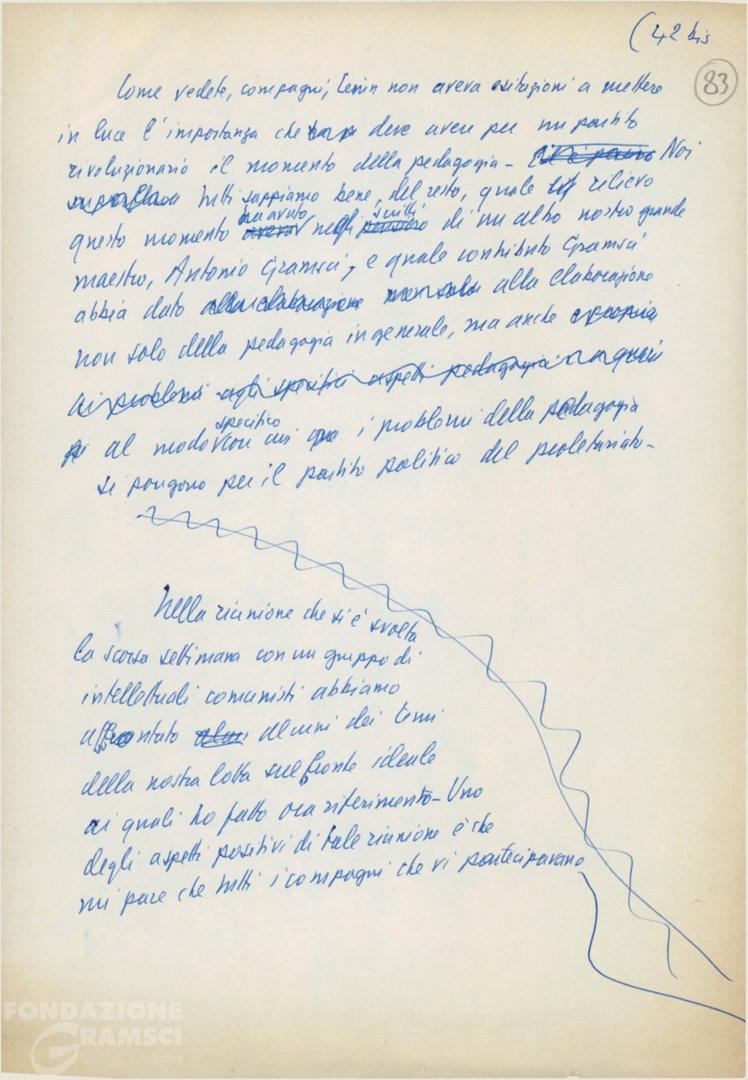 (42 bis
83
Come vedete, compagni, Lenin non aveva esitazioni a mettere
in luce l'importanza che deve avere per un partito
rivoluzionario il momento della pedagogia – Noi
tutti sappiamo bene, del resto, quale rilievo
questo momento ha avuto negli scritti di un altro nostro grande
maestro, Antonio Gramsci, e quale contributo Gramsci
abbia dato alla elaborazione non solo alla elaborazione
non solo della pedagogia in generale, ma anche
ai problemi agli specifici aspetti pedagogici
al modo specifico con cui i problemi della pedagogia
si pongono per il partito politico del proletariato –
Nella riunione che si è svolta
la scorsa settimana con un gruppo di
intellettuali comunisti abbiamo
affrontato alcuni dei temi
della nostra lotta sul fronte ideale
ai quali ho fatto ora riferimento – Uno
degli aspetti positivi di tale riunione è che
mi pare che tutti i compagni che vi partecipavano
FONDAZIONE
GRAMSCI